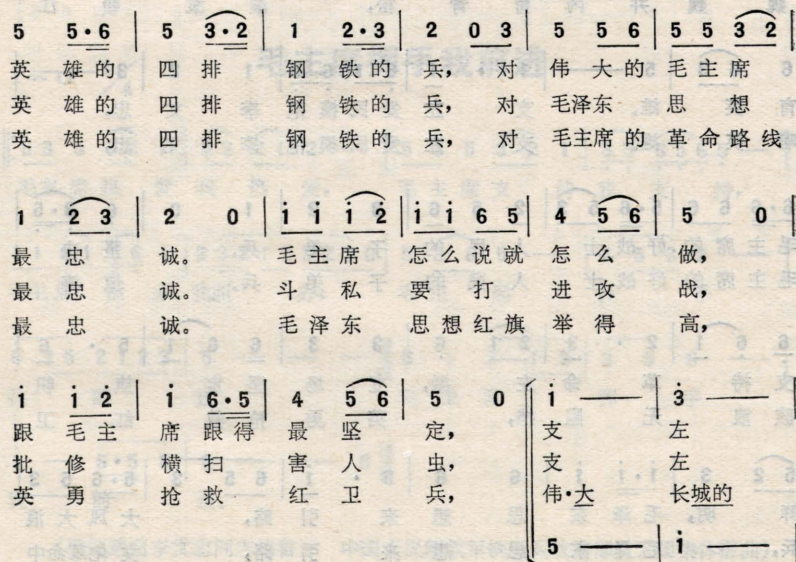 5 5·6 | 5 3·2 | 1 2·3 | 2 0 3 | 5 5 6 | 5 5 3 2
英 雄的 四 排 钢 铁的 兵， 对 伟 大的 毛主席
英 雄的 四 排 钢 铁的 兵， 对 毛泽东 思 想
英 雄的 四 排 钢 铁的 兵， 对 毛主席的 革命路线
1 2 3 | 2 0 | i i i 2̇ | i i 6 5 | 4 5 6 | 5 0
最 忠 诚。 毛主席 怎么说就 怎 么 做，
最 忠 诚。 斗 私 要 打 进 攻 战，
最 忠 诚。 毛泽东 思想红旗 举 得 高，
i i 2̇ | i 6·5 | 4 5 6 | 5 0 | i — | 3̇ —
跟 毛主 席 跟得 最 坚 定， 支 左
批 修 横 扫 害 人 虫， 支 左
英 勇 抢 救 红 卫 兵， 伟·大 长城的
5 — | i —